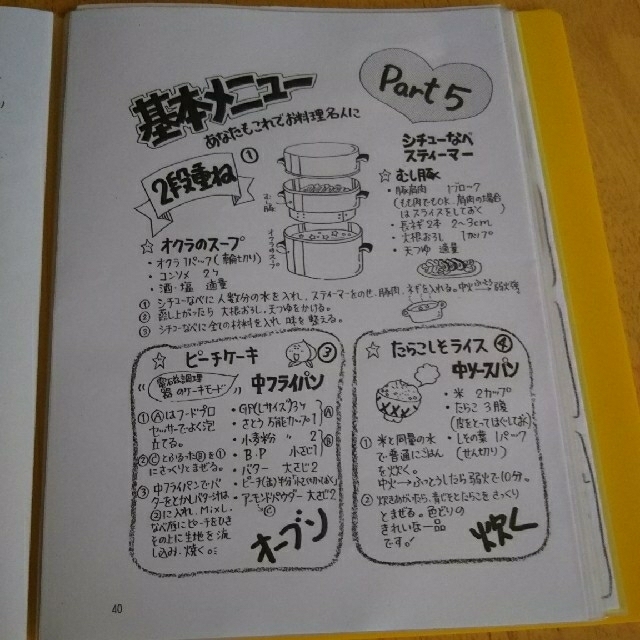 基本メニュー
Part 5
あなたもこれでお料理名人に
2段重ね
①
むし豚
オクラのスープ
シチューなべ
スティーマー
☆むし豚
・豚肩肉 1ブロック
(もも肉でもOK.肩肉の場合
はスライスをしておく)
・長ネギ2本 2〜3cm
・大根おろし 1カップ
・天つゆ 適量
☆オクラのスープ
・オクラ1パック(輪切り)
・コンソメ 2ケ
・酒・塩 適量
① シチューなべに人数分の水を入れ、スティーマーをのせ、豚肉、ネギを入れる。中火 弱火
② 蒸し上がったら 大根おろし、天つゆをかける。
③ シチューなべに全ての材料を入れ 味を整える。
☆ ピーチケーキ ③
電磁調理
器のケーキモード
中フライパン
・卵(Lサイズ)3ケ
・さとう 万能カップ1
Ⓐ
・小麦粉 〃 2
・B・P 小さじ1
Ⓑ
・バター 大さじ2
・ピーチ(缶)半分
・アーモンドパウダー 大さじ2
Ⓒ
① Ⓐはフードプロ
セッサーでよく泡
立てる。
② Ⓒとふるった Ⓑを①
にさっくりとまぜる。
③ 中フライパンでバ
ターをとかしバター汁は
②に入れ、Mixし
なべ底にピーチをひき
その上に生地を流
し込み・焼く。
オーブン
☆ たらこしそライス ④
中ソースパン
・米 2カップ
・たらこ 3腹
(皮をとってほぐしておく)
・しその葉 1パック
(せん切り)
① 米と同量の水
で普通にごはん
を炊く。
中火→ふっとうしたら弱火で10分。
② 炊きあがったら、青じそとたらこをさっくり
とまぜる。色どりの
きれいな一品
です。
炊く
40